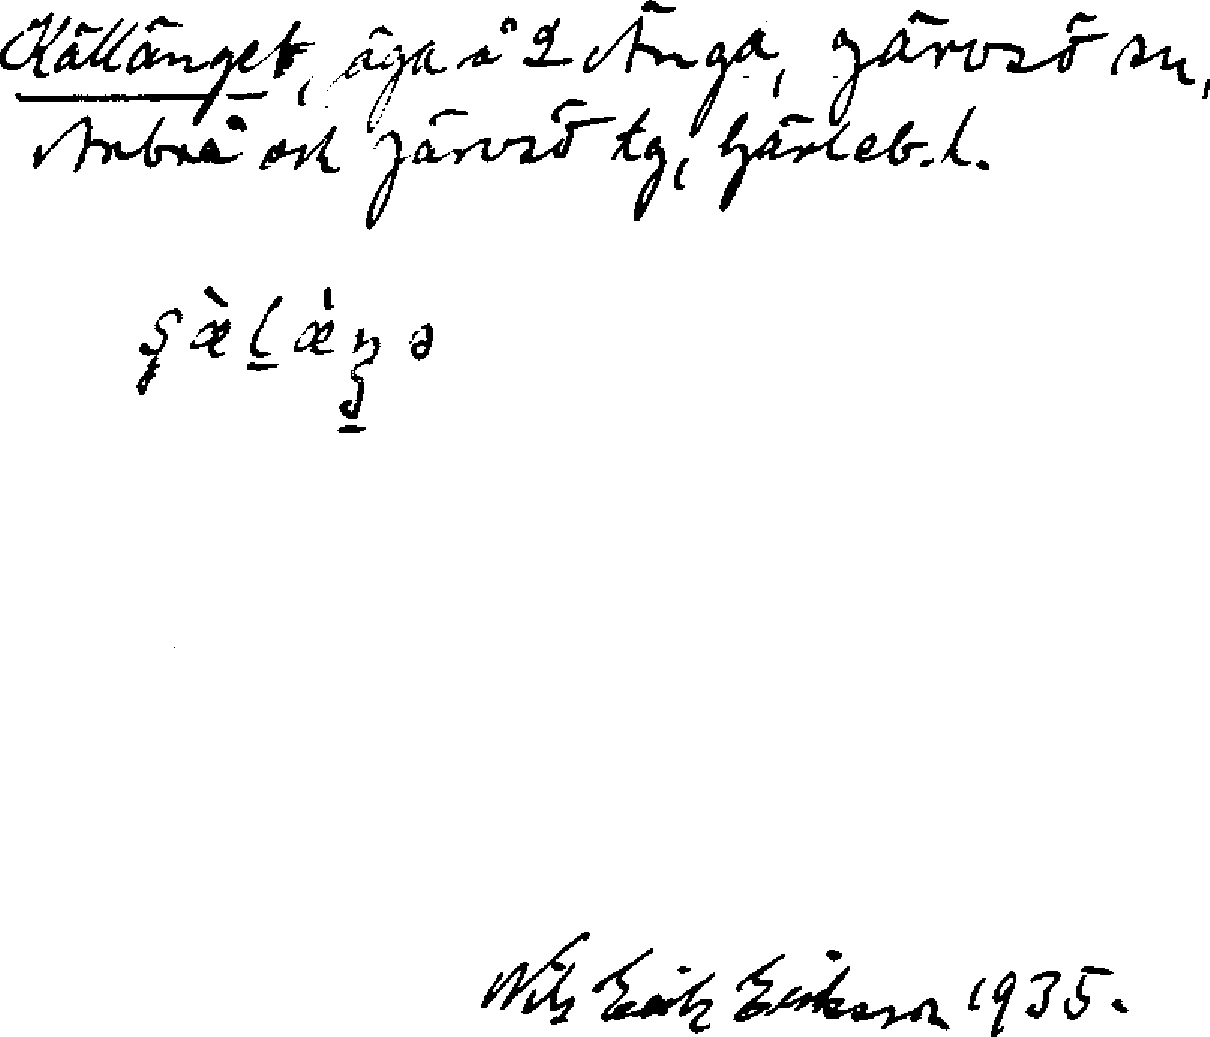 Källänget, äga å 2 Änga, Järvsö sn,
Arbrå och Järvsö tg, Gävleb. l.
Nils Erik Eriksson 1935.